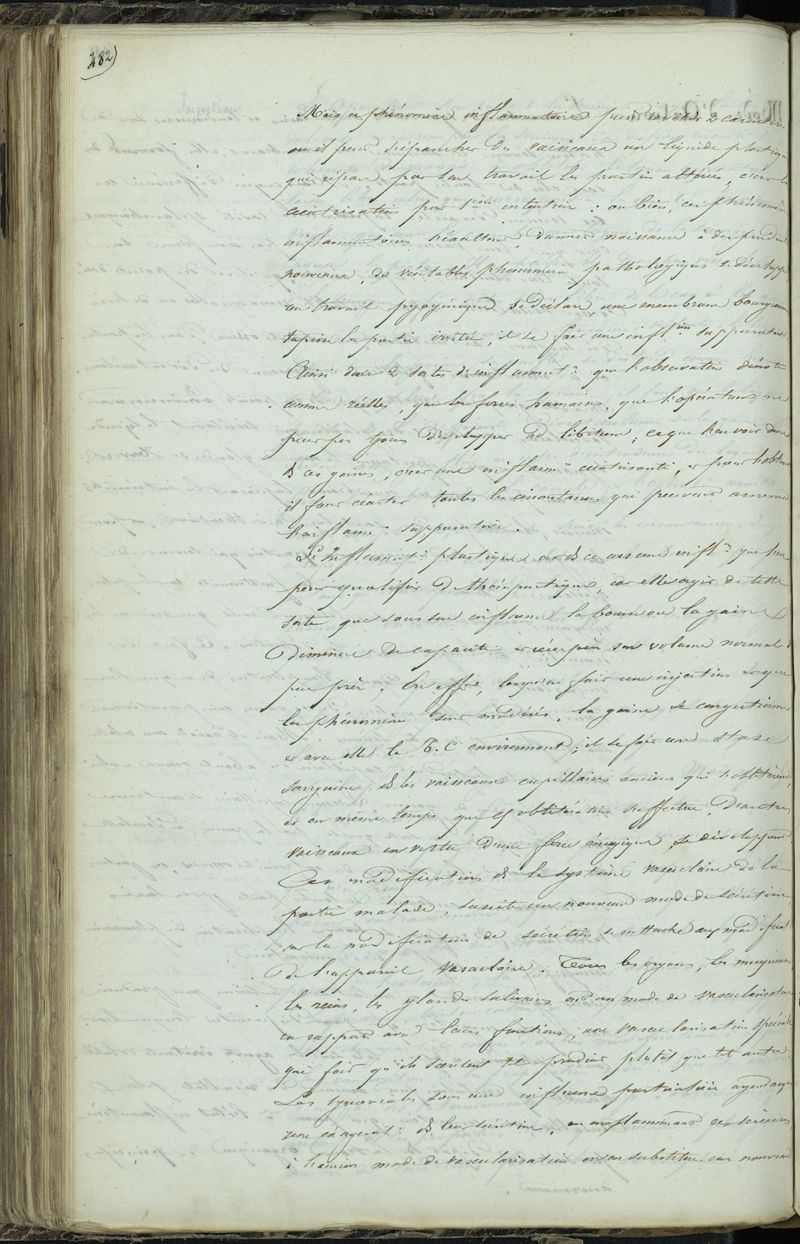 282)
Mais ce phénomène inflammatoire peut revêtir 2 caractères
ou il peut s'épancher des vaisseaux un liquide plastique
qui répare par son travail les parties altérées, c'est la
cicatrisation par 1ere intention : ou bien, ces phénomènes
inflammatoires résultent, donnent naissance à des produits
nouveaux, de véritables phénomènes pathologiques se développent
un travail pyogénique se déclare, une membrane bourgeonnante
tapisse la partie irritée, il se fait une inflon suppurative.
Ainsi donc 2 sortes d'inflammatn que l'observation démontre
comme réelles, que les forces humaines, que l'opérateur ne
peut pas tjours développer ad libitum, ce que l'on voit donc
ds ces gaines, c'est une inflamn cicatrisante, et pour l'obtenir
il faut écarter toutes les circonstances qui peuvent amener
l'inflamn suppurative.
L'Inflammatn plastique est ds ce cas une inflon que l'on
peut qualifier de thérapeutique, car elle agit de telle
sorte que sous son influence la bourse ou la gaine
diminue de capacité et récupère son volume normal à
peu près. En effet, lorsqu'on fait une injection et que
les phénomènes sont modérés, la gaine se congestionne
et avec elle le T. C environnant ; il se fait une stase
sanguine ds les vaisseaux capillaires anciens qui s'oblitèrent,
et en même temps que cette oblitération s'effectue, d'autres
vaisseaux en vertu d'une force énergique, se développent
Ces modifications ds le système vasculaire de la
partie malade, suscite un nouveau mode de sécrétion
car la modification de sécrétion se rattache aux modificat
de l'appareil vasculaire. Tous les organes, les muqueuses
les reins, les glandes salivaires ont un mode de vascularisation
en rapport avec leurs fonctions, une vascularisation spéciale
qui fait qu'ils sécrètent tel produit plutôt que tel autre.
Les synoviales sous une influence particulière ayant acquis
une exagératn ds leur sécrétion, en enflammant ces séreuses
à l'ancien mode de vascularisation on en substitue un nouveau